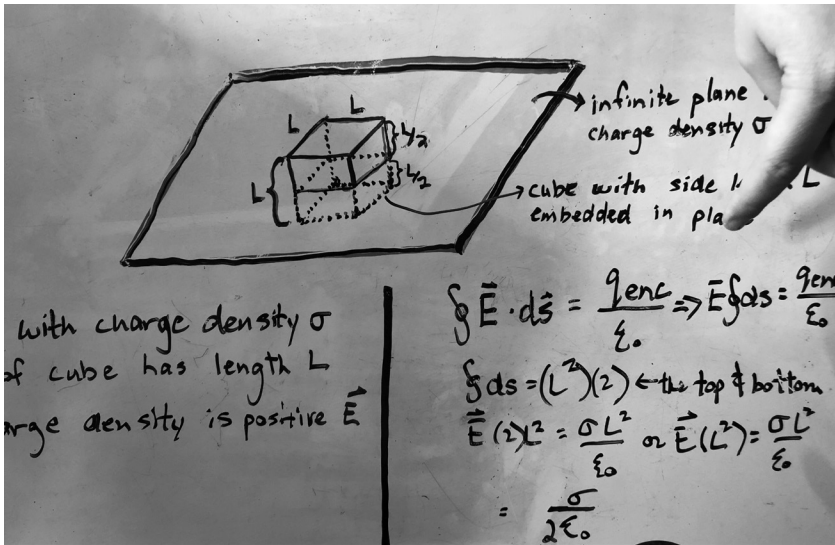 L
L
L/2
L
L/2
infinite plane
charge density σ
cube with side L
embedded in
with charge density σ
of cube has length L
density is positive E⃗
∮ E⃗ · ds⃗ = qenc/ε₀ => E⃗ ∮ds = qen/ε₀
∮ ds = (L²)(2) ← the top & bottom
E⃗ (2)L² = σL²/ε₀ or E⃗(L²) = σL²/ε₀
= σ/2ε₀